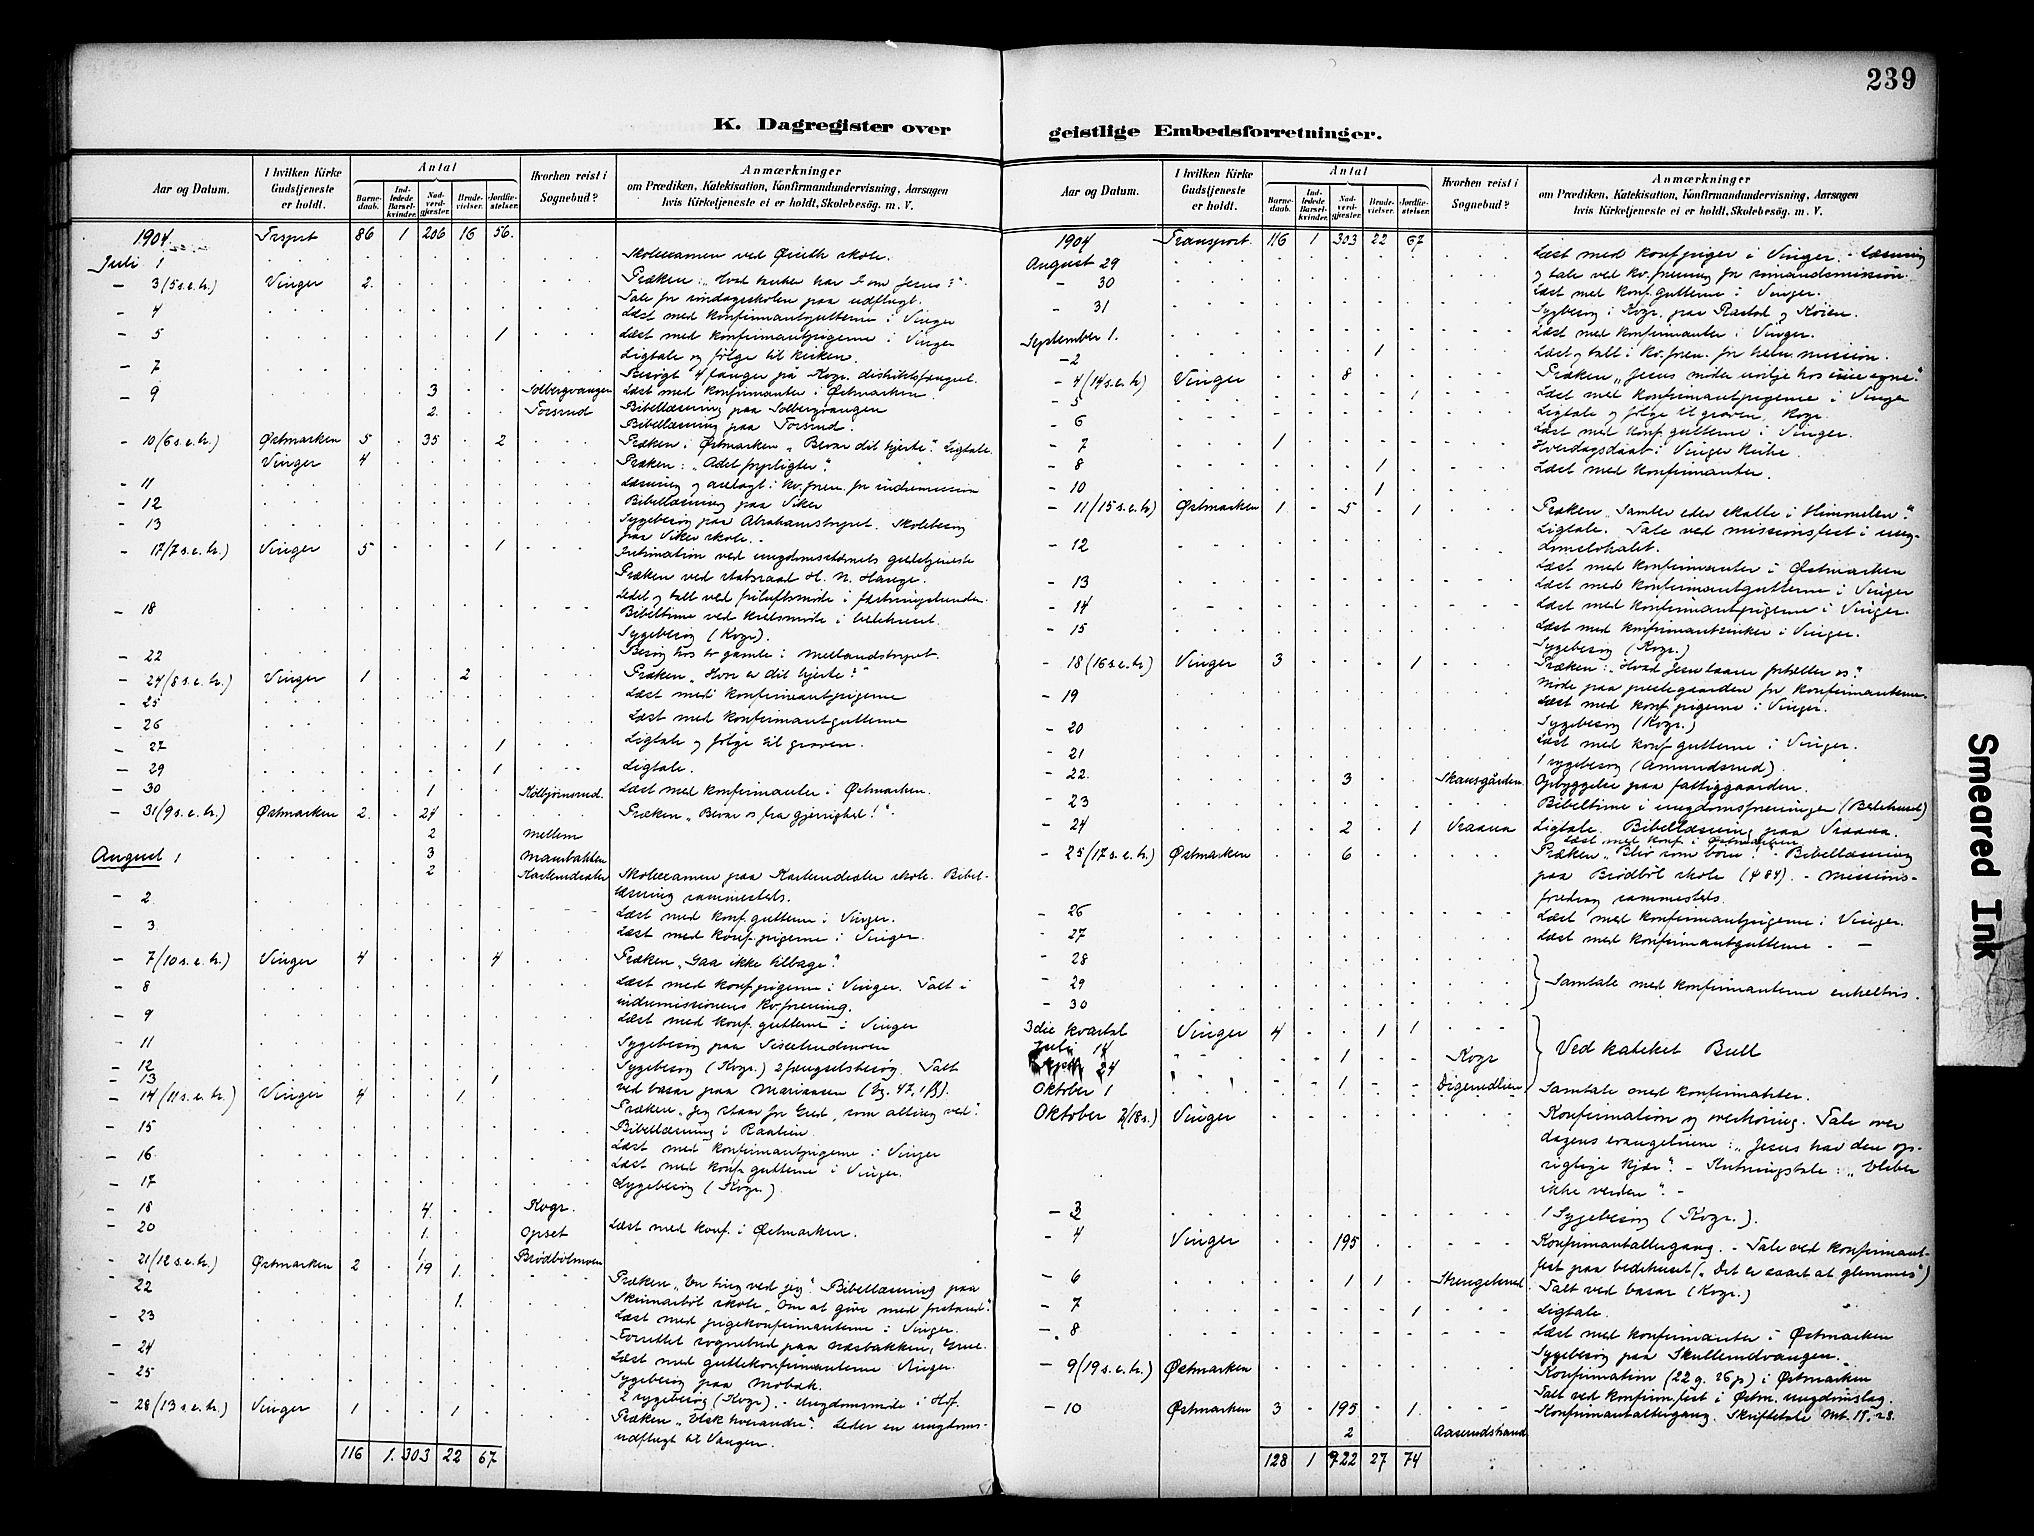 239
K. Dagregister over geistlige Embedsforretninger.
Aar og Datum. I hvilken Kirke Gudstjeneste er holdt. Antal Barnedaab. Indledede Barselkvinder. Nadverdgjester. Brudevielser. Jordfæstelser. Hvorhen reist i Sognebud? Anmærkninger om Prædiken, Katekisation, Konfirmandundervisning, Aarsagen hvis Kirketjeneste ei er holdt, Skolebesøg. m. V.
1904 Trspt 86 1 206 16 56.
Juli 1 Skoleexamen ved skole.
- 3 (5 s.e.tr.) Vinger 2. Præken: "Hvad tanker har I om Jesus?"
Tale for søndagsskolen paa udflugt.
- 4 Læst med konfirmantgutterne i Vinger
- 5 1 Læst med konfirmantpigerne i Vinger
Ligtale og følge til kirken.
- 7 Besøgt 4 fanger på Kvgr. distriktsfængsel.
- 9 3 Solbergvangen Læst med konfirmanter i Østmarken
2. Forsrud Bibellæsning paa Solbergvangen
Bibellæsning paa Forsrud.
- 10 (6 s.e.tr.) Østmarken 5 35 2 Præken i Østmarken "Bevar dit hjerte". Ligtale.
Vinger 4 Præken: "Adel forpligter"
- 11 Læsning og i kv.foren. for indremission
- 12 Bibellæsning paa Viker
- 13 Sygebesøg paa Abrahamstorpet. Skolebesøg
paa Viker skole.
- 17 (7 s.e.tr.) Vinger 5 1 Intimation ved ungdomsstævnets gudstjeneste
Præken ved statsraad H. N. Hauge.
Ledet og talt ved friluftsmøde i fæstningslunden.
- 18 Bibeltime ved kredsmøde i bedehuset.
Sygebesøg (Kvgr).
- 22 Besøg hos gamle i Mellandstorpet.
- 24 (8 s.e.tr.) Vinger 1 2 Præken "Hvor er dit hjerte?"
- 25 Læst med konfirmantpigerne
- 26 Læst med konfirmantgutterne
- 27 1 Ligtale og følge til graven.
- 29 1 Ligtale.
- 30 1 Kolbjørnsrud. Læst med konfirmanter i Østmarken.
- 31 (9 s.e.tr.) Østmarken 2. 24 Præken "Bevar os fra gjerrighed!"
2 Mellem
August 1 3 Maubakken
2 Skoleexamen paa skole. Bibel-
- 2 læsning sammesteds.
Læst med konf.gutterne i Vinger.
- 3 Læst med konf.pigerne i Vinger.
- 7 (10 s.e.tr.) Vinger 4 4 Præken "Gaa ikke tilbage".
- 8 Læst med konf.pigerne i Vinger. Talt i
indremissionens kv.forening.
- 9 Læst med konf.gutterne i Vinger
- 11 Sygebesøg paa
- 12 Sygebesøg (Kvgr.) 2 fængselsbesøg. Talt
- 13 1 ved basar paa
- 14 (11 s.e.tr.) Vinger 4 1. Præken "Jeg staar for Gud, som alting ved".
- 15 Bibellæsning i
- 16 Læst med konfirmantpigerne i Vinger
- 17 Læst med konf.gutterne i Vinger.
Sygebesøg (Kvgr.)
- 18 4. Kvgr.
- 20 1. Opset Læst med konf. i Østmarken.
1 Brødbølmoen
- 21 (12 s.e.tr.) Østmarken 2 19 1. Præken "En ting ved jeg". Bibellæsning paa
- 22 1. Skinnarbøl skole "Om at give med forstand".
- 23 Læst med pigekonfirmanterne i Vinger.
- 24 Forrettet sognebud paa Næsbakken, Grue.
Læst med guttekonfirmanterne Vinger.
- 25 Sygebesøg paa Mobak.
2 sygebesøg (Kvgr). - Ungdomsmøde i Hof.
- 28 (13 s.e.tr.) Vinger 1 1 Præken "Elsk hverandre". Leder en ungdoms-
udflugt til Vangen.
116 1. 303 22 67
Aar og Datum. I hvilken Kirke Gudstjeneste er holdt. Antal Barnedaab. Indledede Barselkvinder. Nadverdgjester. Brudevielser. Jordfæstelser. Hvorhen reist i Sognebud? Anmærkninger om Prædiken, Katekisation, Konfirmandundervisning, Aarsagen hvis Kirketjeneste ei er holdt, Skolebesøg. m. V.
1904 Transport. 116 1 303 22 67 Læst med konf.piger i Vinger. - Læsning
August 29 og tale ved kv.forening for sømandsmission.
- 30 Læst med konf.gutterne i Vinger.
- 31 Sygebesøg i Kvgr. paa Rastad og Køien.
September 1. Læst med konfirmanter i Vinger.
- 2 1 Læst og talt i kv.foren. for mission.
- 4 (14 s.e.tr.) Vinger 8 Præken "Jesus møder uvilje hos sine egne".
- 5 1 Læst med konfirmantpigerne i Vinger
Ligtale og følge til graven, Kvgr.
- 6 Læst med konf.gutterne i Vinger.
- 7 1 Hverdagsdaab i Vinger kirke.
- 8 1 Læst med konfirmanter.
- 10 1
- 11 (15 s.e.tr.) Østmarken 1. 5 1 Præken "Samler eder skatte i Himmelen".
Ligtale. Tale ved missionsfest i ung-
- 12 domslokalet.
Læst med konfirmanter i Østmarken
- 13 Læst med konfirmantgutterne i Vinger
- 14 Læst med konfirmantpigerne i Vinger.
- 15 Læst med konfirmantpiker i Vinger.
Sygebesøg (Kvgr.)
- 18 (16 s.e.tr.) Vinger 3 1 Præken: "Hvad Jesu taarer fortæller os".
Møde paa prestegaarden for konfirmanterne.
- 19 Læst med konf.pigerne i Vinger.
- 20 Sygebesøg (Kvgr.)
Læst med konf.gutterne i Vinger.
- 21 1 sygebesøg (Amundsrud).
- 22. 3 Skansgården Opbyggelse paa fattiggaarden.
- 23 Bibeltime i ungdomsforeningen (Bedehuset)
- 24 2 1 Vraava Ligtale. Bibellæsning paa Vraava.
Læst med konf. i Østmarken
- 25 (17 s.e.tr.) Østmarken 6 Præken "Bliv som børn!" - Bibellæsning
paa Brødbøl skole (484). - Missions-
- 26 foredrag sammesteds.
Læst med konfirmantpigerne i Vinger.
- 27 Læst med konfirmantgutterne - -
- 28
- 29 Samtale med konfirmanterne enkeltvis.
- 30
3die kvartal Vinger 4 1 1
Juli 14 " 1 Kvgr Ved kateket Bull
24 " 1 Digerudlien
Oktober 1 Samtale med konfirmanter.
Oktober 2 (18 s.) Vinger Konfirmation og overhøring. Tale over
dagens evangelium: "Jesus har den op-
rigtige kjær". - Slutningstale: "Elsker
ikke verden". -
- 3 1 Sygebesøg (Kvgr.).
- 4 Vinger 195 Konfirmantaltergang. - Tale ved konfirmant-
fest paa bedehuset ("Det er svært at glemmes")
- 6 1 1 Talt ved basar (Kvgr.)
- 7 1 Ligtale.
- 8 Læst med konfirmanter i Østmarken
Sygebesøg paa Skullerudvangen.
- 9 (19 s.e.tr.) Østmarken Konfirmation (22 g. 26 p) i Østmarken
Talt ved konfirm.fest i Østm. ungdomslag.
- 10 Østmarken 3 195 1. Konfirmantaltergang. Skriftetale Mt. 11, 28.
2 Aaserudstrand
128 1 722 27 74
Smeared Ink